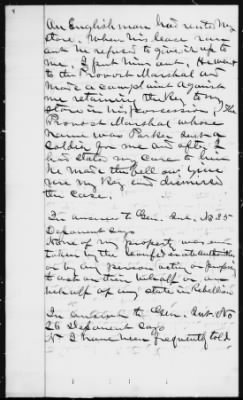 An Englishman had rented my
store. When his lease ran
out he refused to give it up to
me. I put him out. He went
to the Provost Marshal and
made a complaint against
me retaining the Key to my
store in his possession, The
Provost Marshal whose
name was Parker sent a
Soldier for me and after I
had stated my case to him
he made the fellow give
me my Key and dismissed
the case.
In answer to Gen. Int. No 25
Deponent says
None of my property was ever
taken by the Confederate authorities
or by any persons acting or professing
to act on their behalf or on
behalf of any state in Rebellion
In answer to Gen. Int. No
26 Deponent says
No I have been frequently told